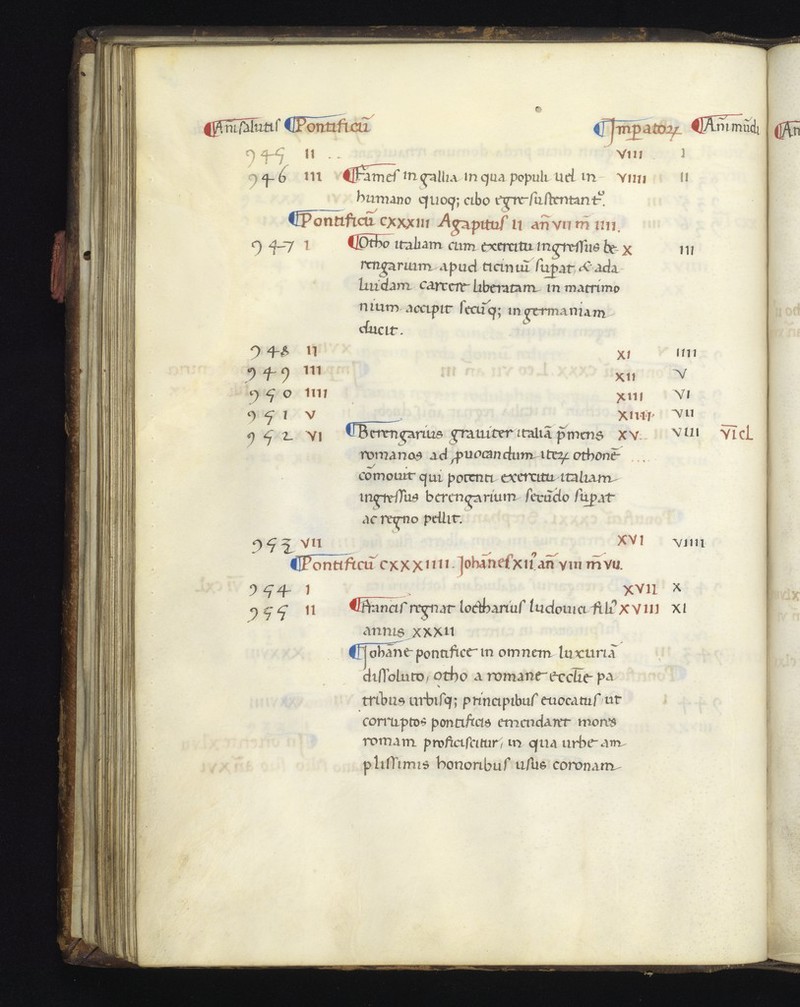 ¶Añi salutis ¶Pontificũ ¶Jmꝑatoꝝ ¶Añi mũdi
945 II VIII I
946 III ¶Fames in gallia in qua populi uel in VIIII II
humano quoq; cibo egre sustentantᷣ.
¶Pontificũ CXXXIII Agapitus II añ VII m̃ IIII.
947 I ¶Otho italiam cum exercitu ingressus be X III
rengarium apud ticinũ suꝑat, & ada
luidam carcere liberatam in matrimo
nium accipit secũq; in germaniam
ducit.
948 II XI IIII
949 III XII V
950 IIII XIII VI
951 V XIIII VII
952 VI ¶Berengarius grauiter italiã p̃mens XV VIII V̅I̅CL
romanos ad ꝓuocandum iteꝝ othonẽ
cõmouit qui potenti exercitu italiam
ingressus berengarium secũdo suꝑat
ac regno pellit.
953 VII XVI VIIII
¶Pontificũ CXXXIIII. Johãnes XII añ VIII m̃ VII.
954 I XVII X
955 II ¶Francis regnat loctharius ludouici fili⁹ XVIII XI
annis XXXII
¶Johãne pontifice in omnem luxuriã
dissoluto, otho a romane ecclie pa
tribus urbisq; principibus euocatus ut
corruptos pontificis emendaret mores
romam proficiscitur, in qua urbe am
plissimis honoribus usus coronam